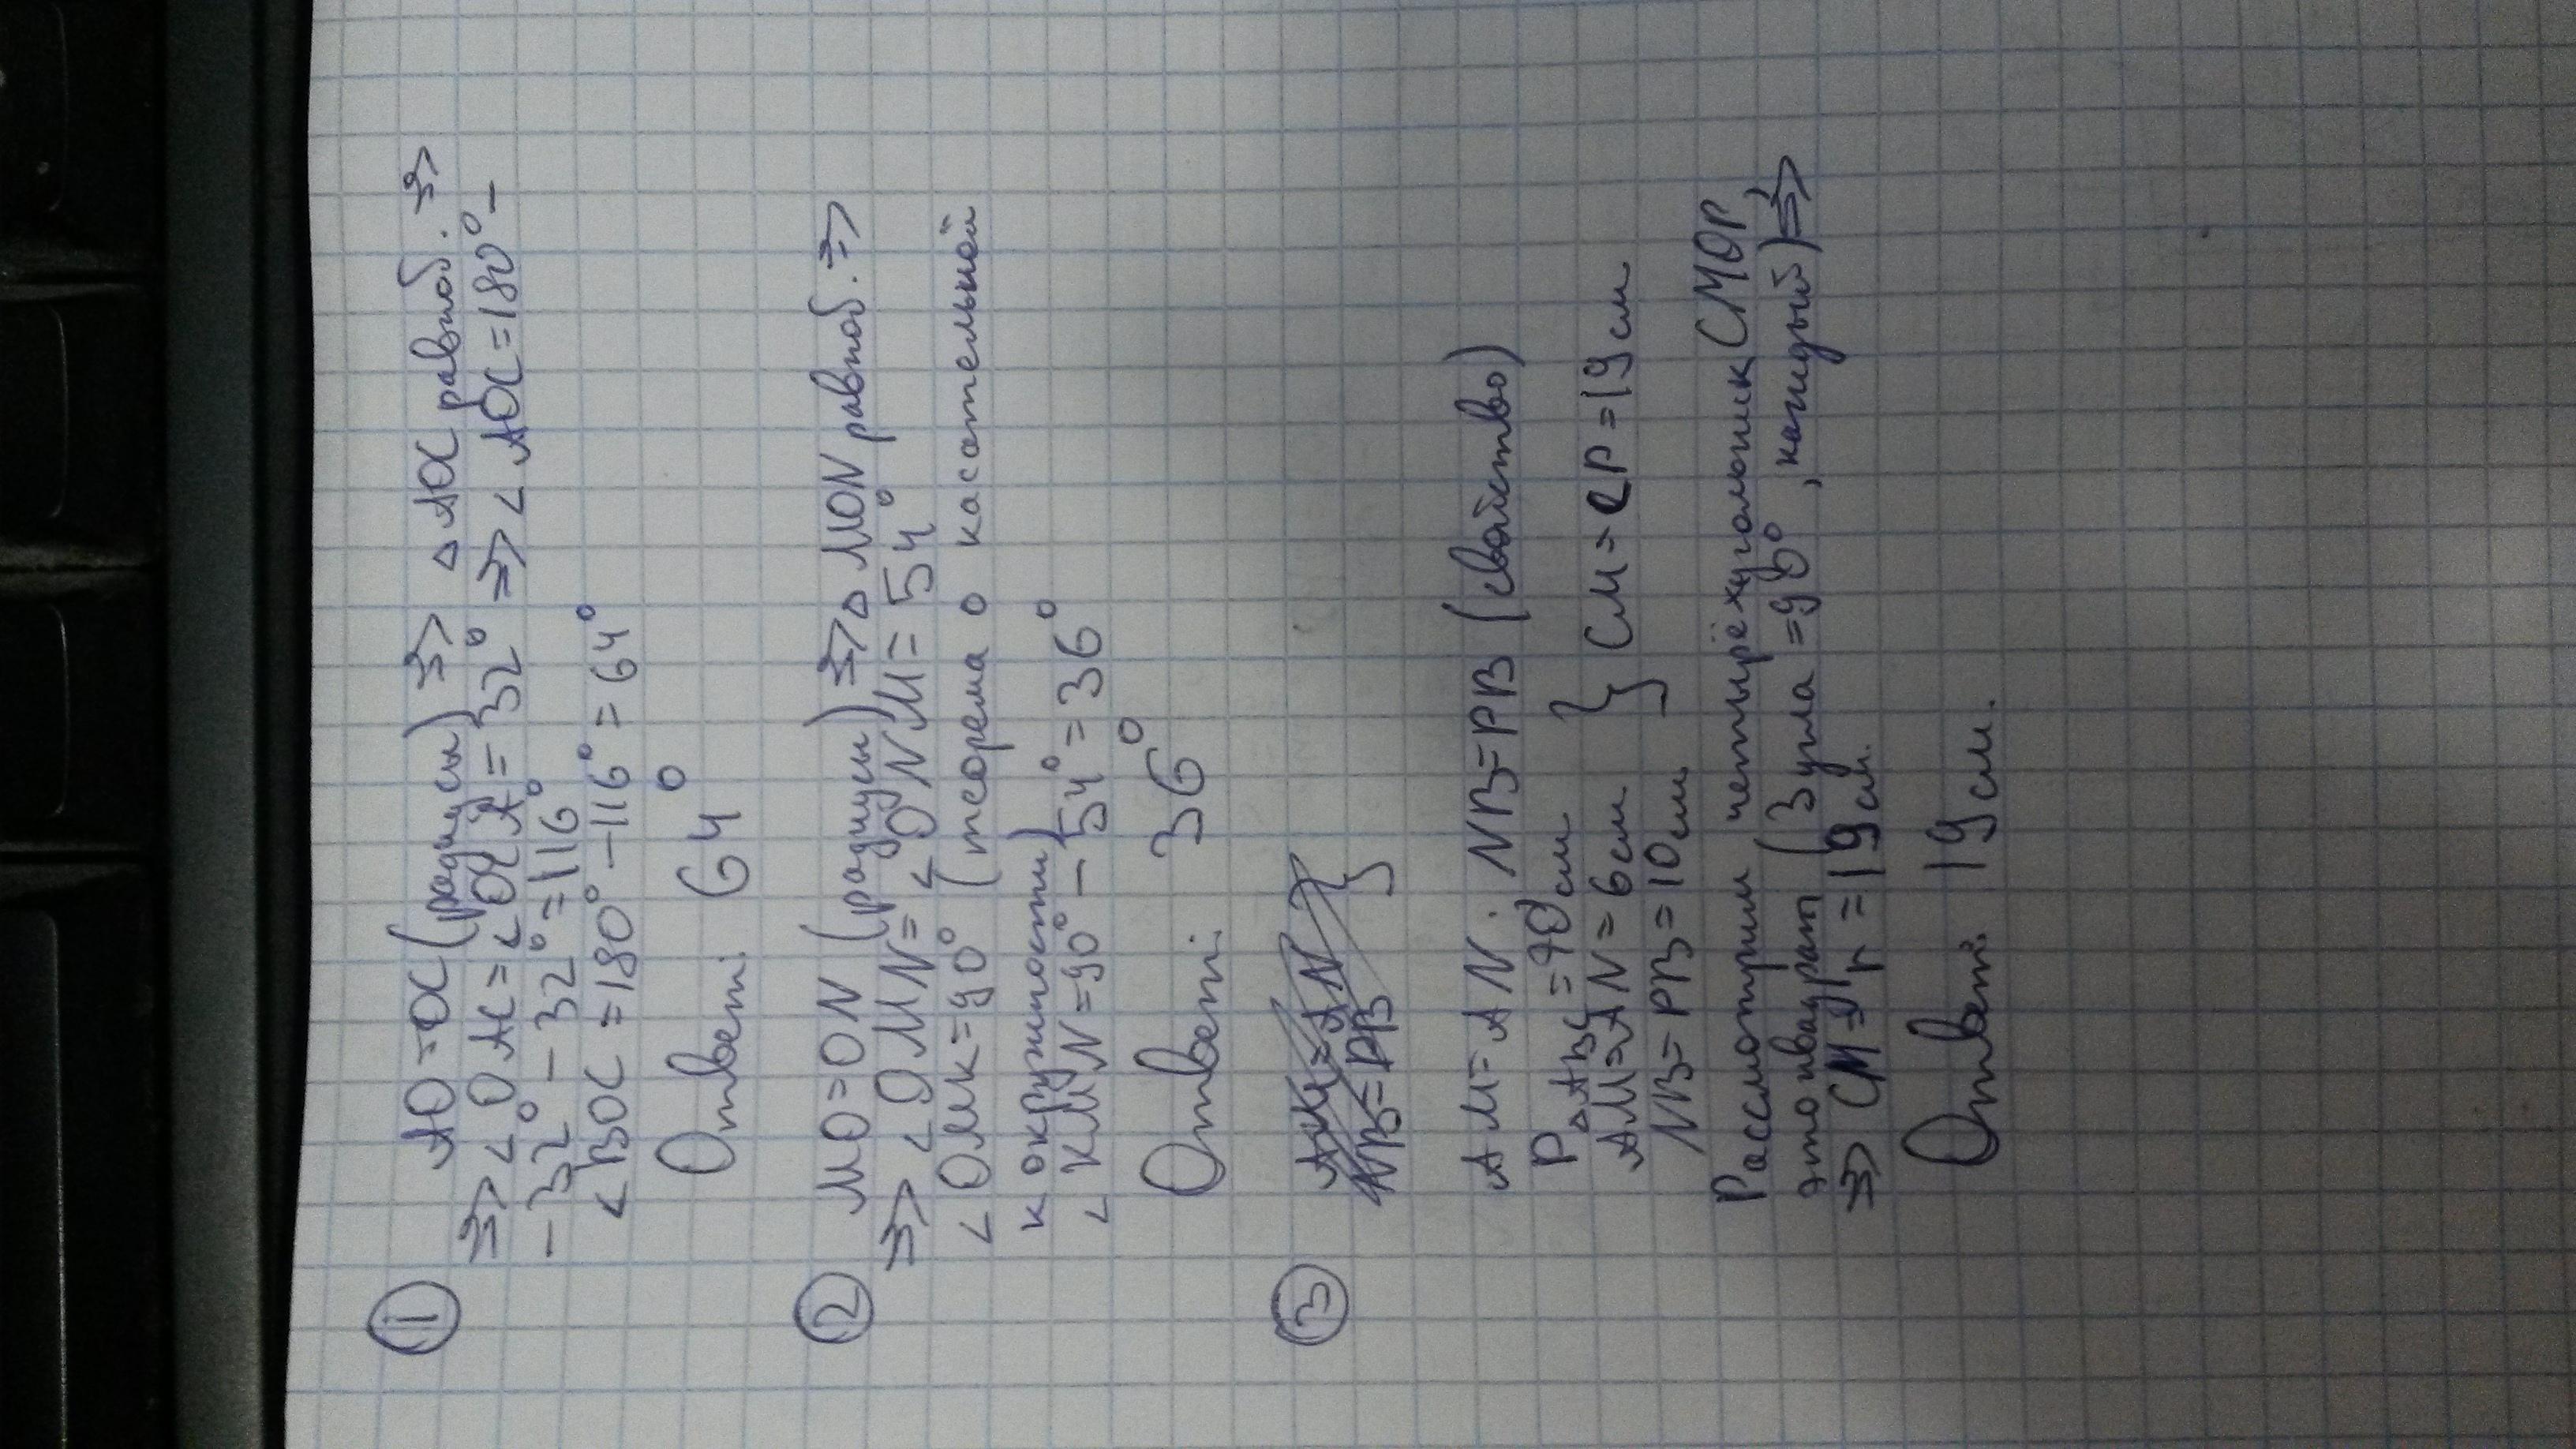 ① AO = OC (радиусы) ⇒ △ AOC равноб. ⇒
⇒ ∠ OAC = ∠ OCA = 32° ⇒ ∠ AOC = 180° –
– 32° – 32° = 116°
∠ BOC = 180° – 116° = 64°
Ответ: 64°
② MO = ON (радиусы) ⇒ △ MON равноб. ⇒
⇒ ∠ OMN = ∠ ONM = 54°
∠ OMK = 90° (теорема о касательной
к окружности)
∠ KMN = 90° – 54° = 36°
Ответ: 36°
③ AM = AN }
NB = PB
AM = AN. NB = PB (свойство)
P △ ABC = 70 см
AM = AN = 6 см } CM = CP = 19 см
NB = PB = 10 см
Рассмотрим четырёхугольник CMOP,
это квадрат (3 угла = 90°, каждый) ⇒
⇒ CM = r = 19 см.
Ответ: 19 см.